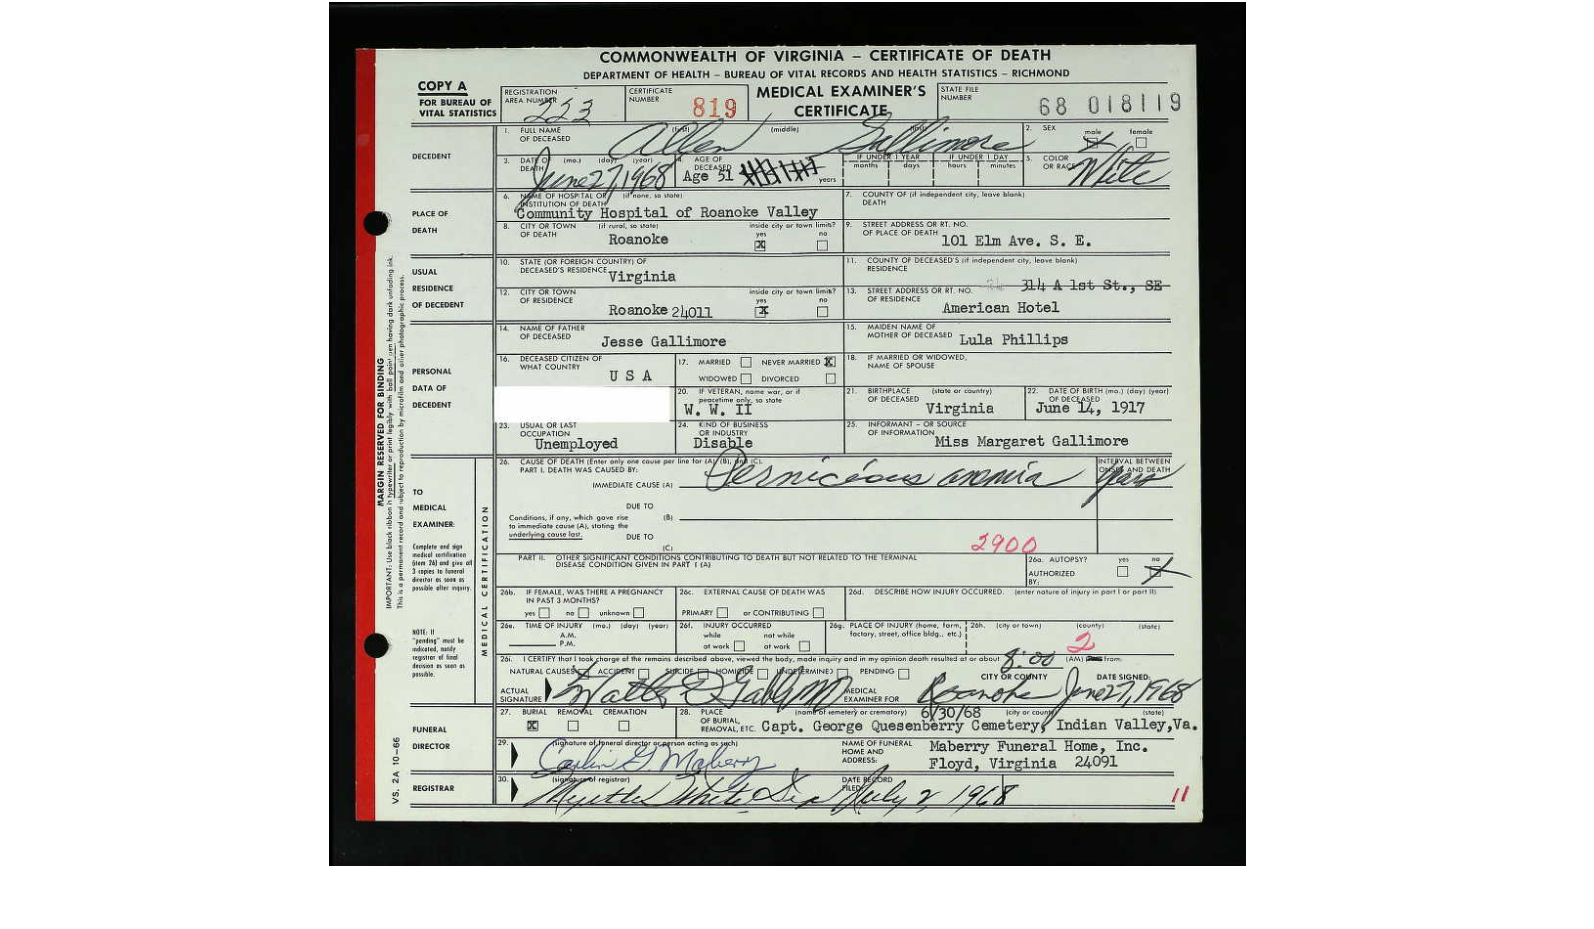 COMMONWEALTH OF VIRGINIA – CERTIFICATE OF DEATH
DEPARTMENT OF HEALTH – BUREAU OF VITAL RECORDS AND HEALTH STATISTICS – RICHMOND
COPY A
FOR BUREAU OF VITAL STATISTICS
REGISTRATION AREA NUMBER 223
CERTIFICATE NUMBER 819
MEDICAL EXAMINER'S CERTIFICATE
STATE FILE NUMBER 68 018119
DECEDENT
1. FULL NAME OF DECEASED (first) (middle) (last) Allen Gallimore
2. SEX male female
3. DATE OF DEATH (mo.) (day) (year) June 27, 1968
4. AGE OF DECEASED Age 51 years
IF UNDER 1 YEAR months days IF UNDER 1 DAY hours minutes
5. COLOR OR RACE White
PLACE OF DEATH
6. NAME OF HOSPITAL OR INSTITUTION OF DEATH (if none, so state) Community Hospital of Roanoke Valley
7. COUNTY OF DEATH (if independent city, leave blank)
8. CITY OR TOWN OF DEATH (if rural, so state) Roanoke inside city or town limits? yes X no
9. STREET ADDRESS OR RT. NO. OF PLACE OF DEATH 101 Elm Ave. S. E.
USUAL RESIDENCE OF DECEDENT
10. STATE (OR FOREIGN COUNTRY) OF DECEASED'S RESIDENCE Virginia
11. COUNTY OF DECEASED'S RESIDENCE (if independent city, leave blank)
12. CITY OR TOWN OF RESIDENCE Roanoke 24011 inside city or town limits? yes X no
13. STREET ADDRESS OR RT. NO. OF RESIDENCE 314 A 1st St., SE
American Hotel
PERSONAL DATA OF DECEDENT
14. NAME OF FATHER OF DECEASED Jesse Gallimore
15. MAIDEN NAME OF MOTHER OF DECEASED Lula Phillips
16. DECEASED CITIZEN OF WHAT COUNTRY U S A
17. MARRIED NEVER MARRIED X
WIDOWED DIVORCED
18. IF MARRIED OR WIDOWED, NAME OF SPOUSE
20. IF VETERAN, name war, or if peacetime only, so state W. W. II
21. BIRTHPLACE OF DECEASED (state or country) Virginia
22. DATE OF BIRTH (mo.) (day) (year) OF DECEASED June 14, 1917
23. USUAL OR LAST OCCUPATION Unemployed
24. KIND OF BUSINESS OR INDUSTRY Disable
25. INFORMANT – OR SOURCE OF INFORMATION Miss Margaret Gallimore
TO MEDICAL EXAMINER:
Complete and sign medical certification (item 26) and give all 3 copies to funeral director as soon as possible after inquiry.
NOTE: If "pending" must be indicated, notify registrar of final decision as soon as possible.
MEDICAL CERTIFICATION
26. CAUSE OF DEATH (Enter only one cause per line for (A), (B), and (C).
PART I. DEATH WAS CAUSED BY:
IMMEDIATE CAUSE (A) Pernicious anemia
INTERVAL BETWEEN ONSET AND DEATH years
DUE TO
Conditions, if any, which gave rise to immediate cause (A), stating the underlying cause last.
(B)
DUE TO
(C)
2900
PART II. OTHER SIGNIFICANT CONDITIONS CONTRIBUTING TO DEATH BUT NOT RELATED TO THE TERMINAL DISEASE CONDITION GIVEN IN PART I (A)
26a. AUTOPSY? yes no
AUTHORIZED BY:
26b. IF FEMALE, WAS THERE A PREGNANCY IN PAST 3 MONTHS? yes no unknown
26c. EXTERNAL CAUSE OF DEATH WAS PRIMARY or CONTRIBUTING
26d. DESCRIBE HOW INJURY OCCURRED. (enter nature of injury in part I or part II)
26e. TIME OF INJURY (mo.) (day) (year) A.M. P.M.
26f. INJURY OCCURRED while at work not while at work
26g. PLACE OF INJURY (home, farm, factory, street, office bldg., etc.)
26h. (city or town) (county) (state)
2
26i. I CERTIFY that I took charge of the remains described above, viewed the body, made inquiry and in my opinion death resulted at or about 8:00 (AM) from:
NATURAL CAUSES ACCIDENT SUICIDE HOMICIDE UNDETERMINED PENDING
ACTUAL SIGNATURE
MEDICAL EXAMINER FOR CITY OR COUNTY Roanoke DATE SIGNED June 27, 1968
FUNERAL DIRECTOR
27. BURIAL X REMOVAL CREMATION
28. PLACE OF BURIAL, REMOVAL, ETC. (name of cemetery or crematory) (city or county) (state)
6/30/68
Capt. George Quesenberry Cemetery, Indian Valley, Va.
29. (signature of funeral director or person acting as such) Carlin G. Maberry
NAME OF FUNERAL HOME AND ADDRESS: Maberry Funeral Home, Inc.
Floyd, Virginia 24091
REGISTRAR
30. (signature of registrar) Myrtle White
DATE RECORD FILED: July 2, 1968
11
MARGIN RESERVED FOR BINDING
IMPORTANT: Use black ribbon in typewriter or print legibly with ball point pen having dark unfading ink.
This is a permanent record and subject to reproduction by microfilm and other photographic process.
VS. 2A 10–66